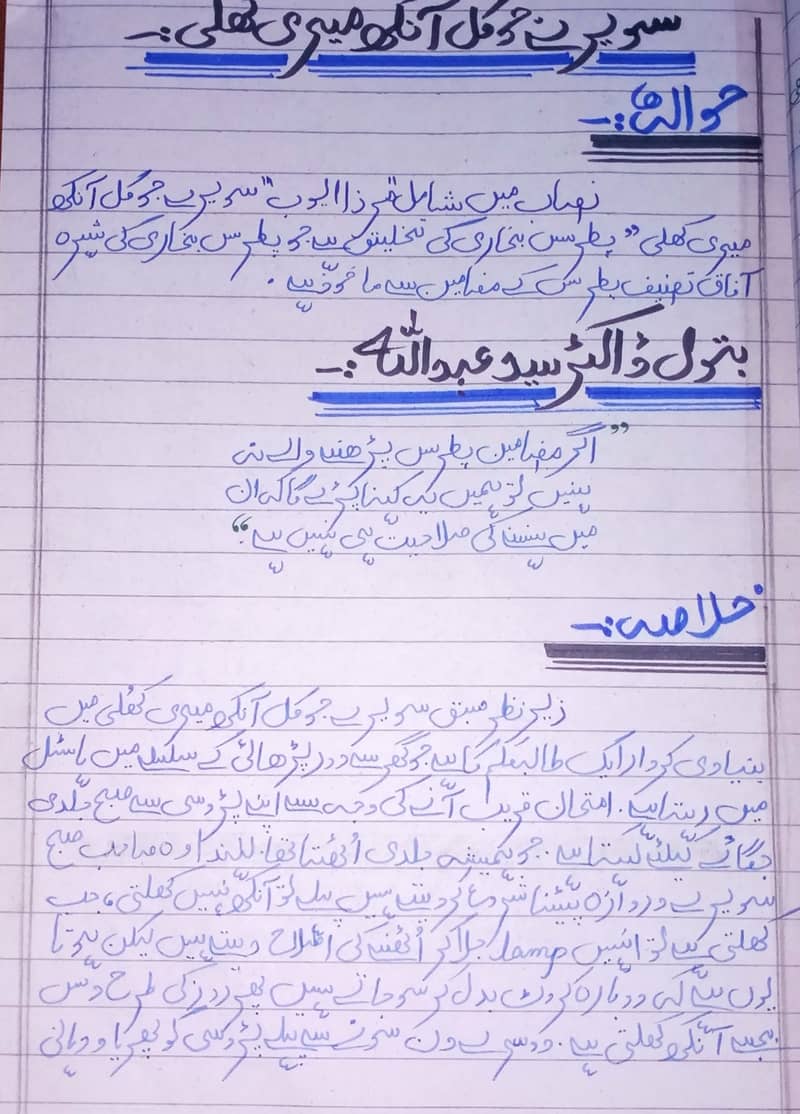 سویرے جو کل آنکھ میری کھلی :۔
حوالہ :۔
نصاب میں شامل "سویرے جو کل آنکھ
میری کھلی" پطرس بخاری کی تخلیق ہے جو پطرس بخاری کی شہرہ
آفاق تصنیف پطرس کے مضامین سے ماخوذ ہے ۔
بقول ڈاکٹر سید عبداللہ :۔
"اگر مضامین پطرس پڑھنے والے نہ
ہنسیں تو ہمیں یہ کہنا پڑے گا کہ ان
میں ہنسنے کی صلاحیت ہی نہیں ہے۔"
خلاصہ :۔
زیر نظر سبق سویرے جو کل آنکھ میری کھلی میں
بنیادی کردار ایک طالبعلم کا ہے جو گھر سے دور پڑھائی کے سلسلہ میں ہاسٹل
میں رہتا ہے۔ امتحان قریب آنے کی وجہ سے اپنے پڑوسی سے صبح جلدی
جگانے کیلئے کہتا ہے۔ جو ہمیشہ جلدی اُٹھتا تھا۔ لہٰذا وہ صاحب صبح
سویرے دروازہ پیٹنا شروع کر دیتے ہیں پہلے تو آنکھ نہیں کھلتی، جب
کھلتی ہے تو انہیں lamp جلا کر اُٹھنے کی اطلاع دیتے ہیں لیکن ہوتا
یوں ہے کہ دوبارہ کروٹ بدل کر سو جاتے ہیں پھر روز کی طرح دس
بجے آنکھ کھلتی ہے۔ دوسرے دن سونے سے پہلے پڑوسی کو پھر یاد دہانی